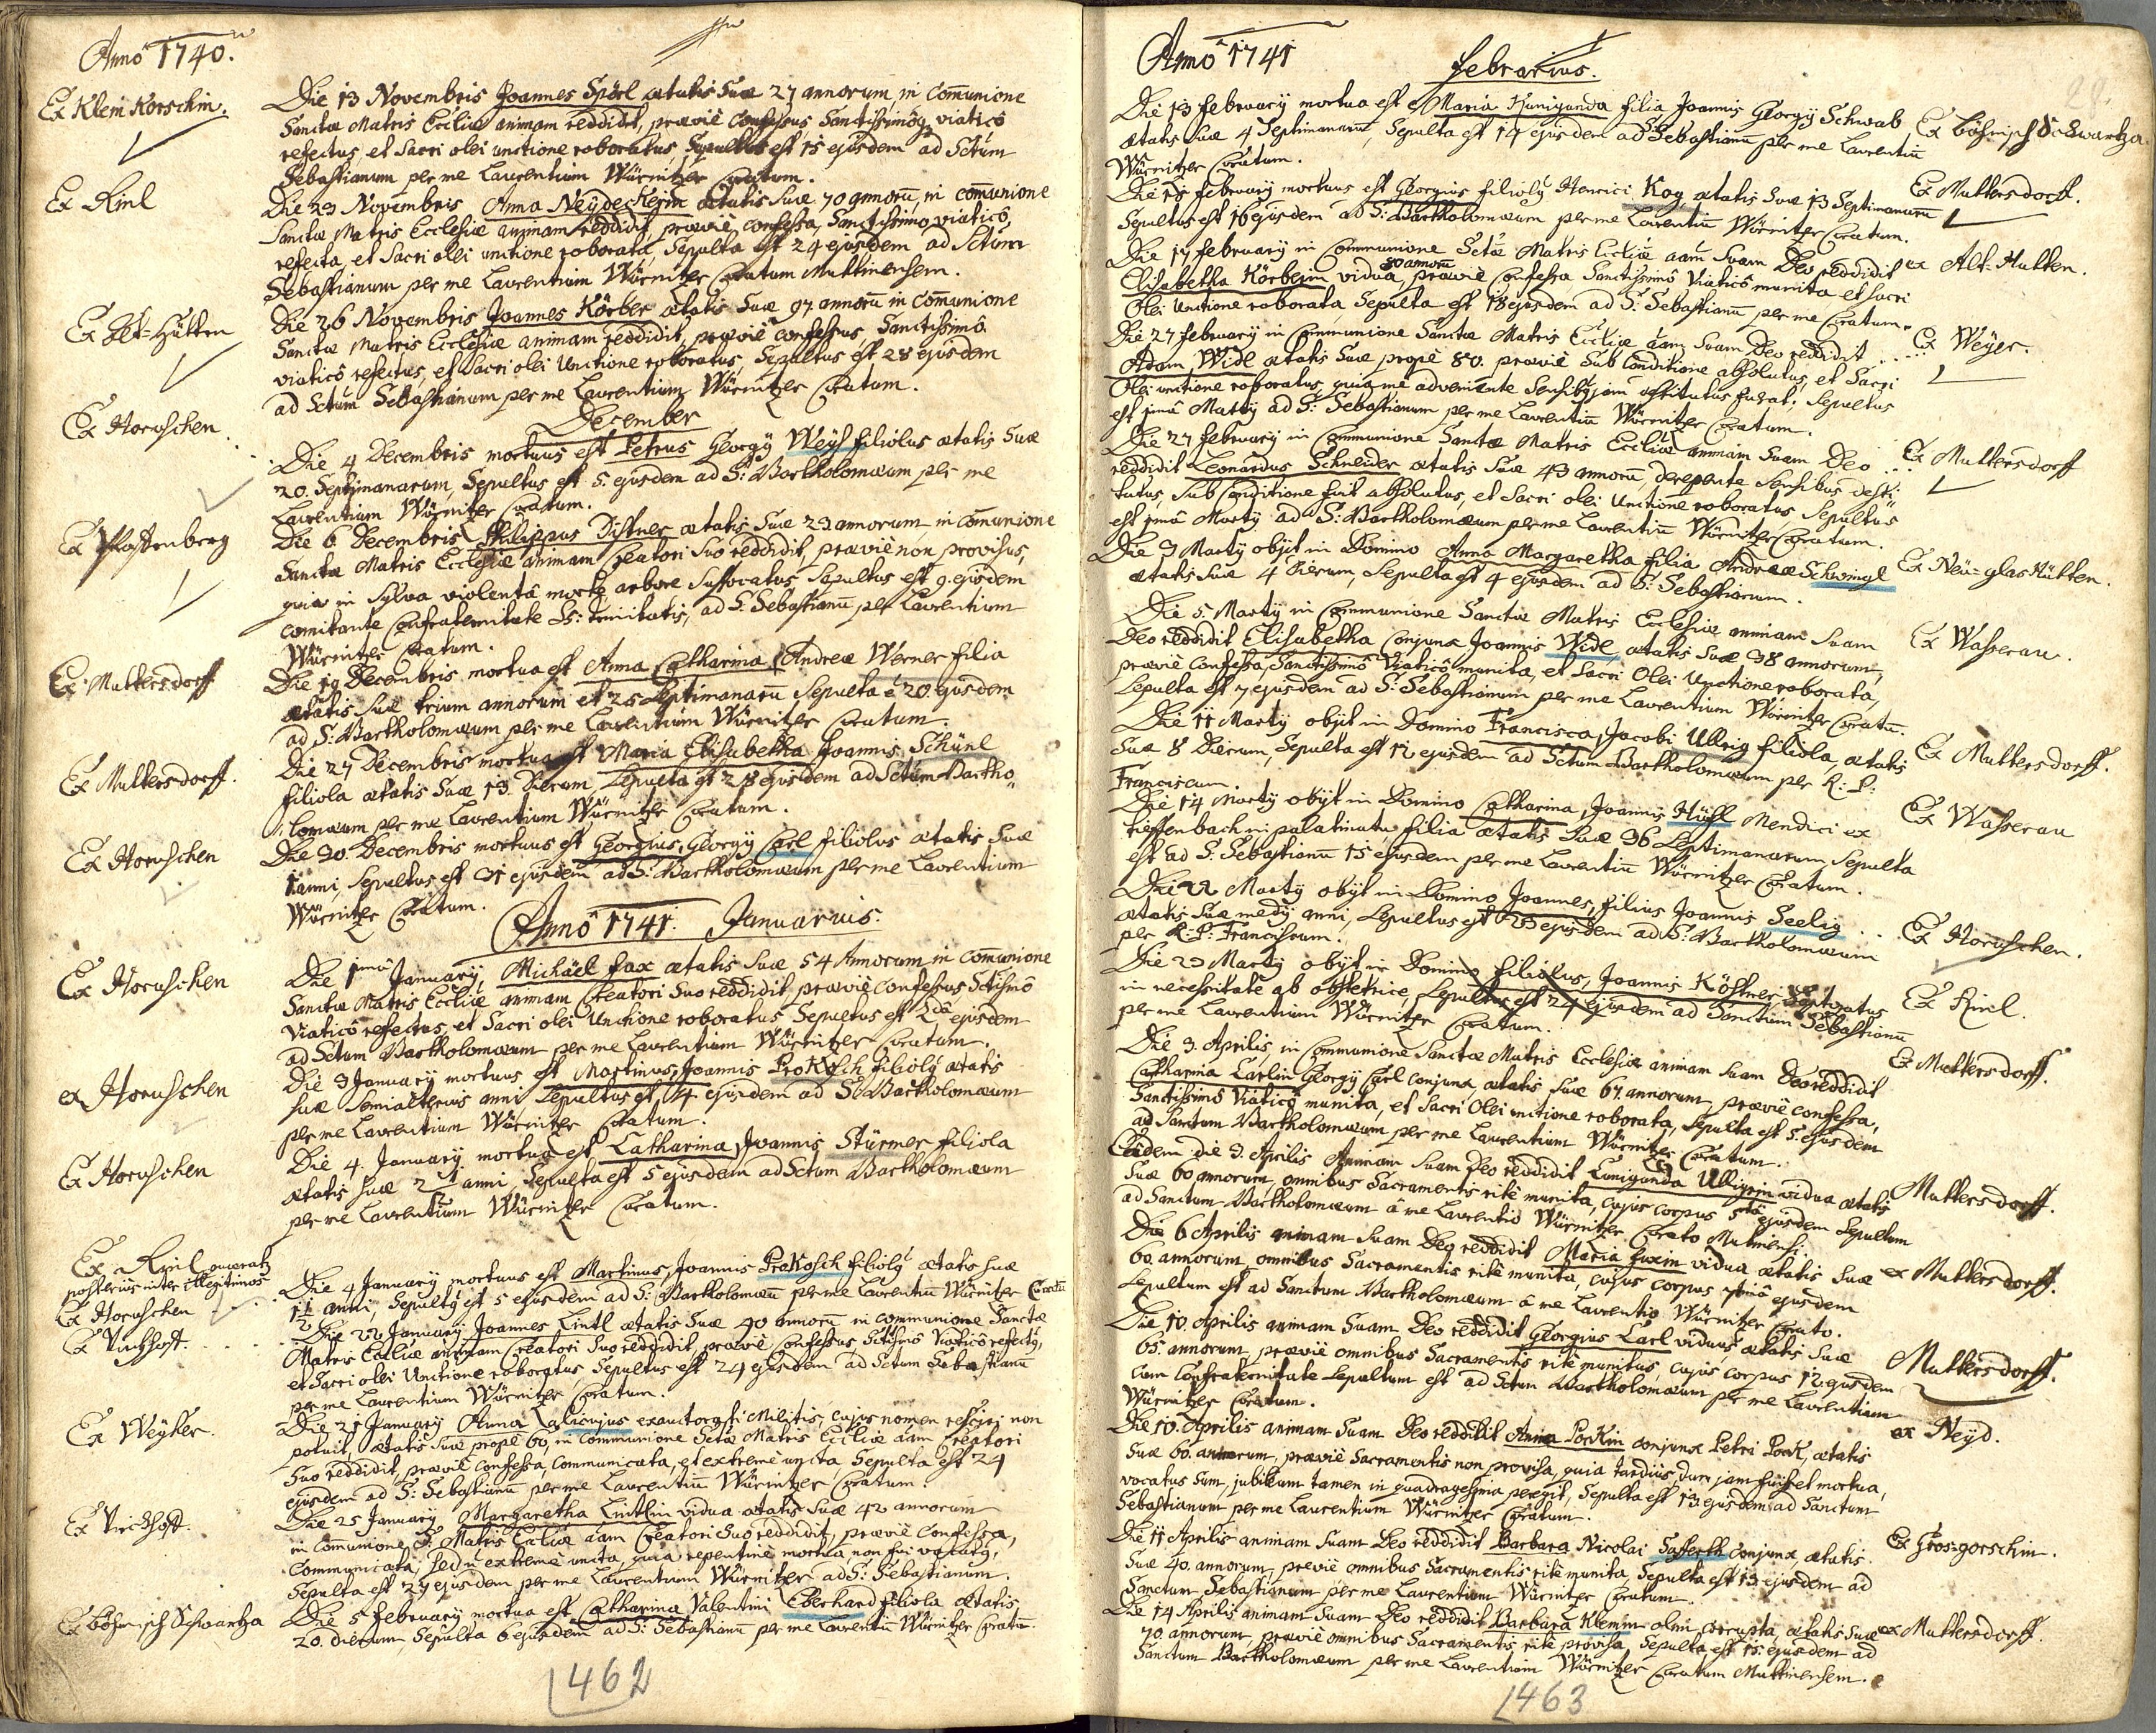 Anno 1740.
Ex Klein Korschin.
Die 13 Novembris Joannes Spörl ætatis suæ 27 annorum, in Comunione
Sanctæ Matris Eccliæ animam reddidit, præviè Confessus Sanctissimoq viaticô
refectus, et Sacri olei unctione roboratus, Sepultus est 15 ejusdem ad Sctum
Sebastianum per me Laurentium Würnitzer Curatum.
Ex Riel
Die 23 Novembris Anna Neÿdeckerin ætatis suæ 70 annorũ, in comunione
Sanctæ Matris Ecclesiæ animam reddidit, præviè confessa, Sanctissimo viaticô
refecta, et Sacri olei unctione roborata, Sepulta est 24 ejusdem ad Sctum
Sebastianum per me Laurentium Würnitzer Curatum Muttinensem.
Ex Alt=Hütten
Die 26 Novembris Joannes Körber ætatis suæ 97 annorũ in Comunione
Sanctæ Matris Ecclesiæ animam reddidit, præviè confessus, Sanctissimô
viaticô refectus, et Sacri olei Unctione roboratus, Sepultus est 28 ejusdem
ad Sctum Sebastianum per me Laurentium Würnitzer Curatum.
December
Ex Horuschen.
Die 4 Decembris mortuus est Petrus Georgÿ Weÿs filiolus ætatis suæ
20. Septimanarum, Sepultus est 5. ejusdem ad S: Bartholomæum per me
Laurentium Würnitzer Curatum.
Ex Plostenberg
Die 6 Decembris Philippus Distner ætatis suæ 23 annorum in Comunione
Sanctæ Matris Ecclesiæ animam Creatori suo reddidit, præviè non provisus,
quia in Sylva violentâ morte arbore Suffocatus, Sepultus est 9. ejusdem
comitante Confraternitate SS: Trinitatis, ad S: Sebastianũ, per Laurentium
Würnitzer Curatum.
Ex Muttersdorff
Die 19 Decembris mortua est Anna Catharina Andreæ Werner filia
ætatis suæ trium annorum et 25 Septimanarũ Sepulta ẽ 20. ejusdem
ad S: Bartholomæum per me Laurentium Würnitzer Curatum.
Ex Muttersdorff.
Die 27 Decembris mortua est Maria Elisabetha Joannis Schünl
filiola ætatis suæ 13. dierum, Sepulta est 28 ejusdem ad Sctum Bartho
lomæum per me Laurentium Würnitzer Curatum.
Ex Horuschen
Die 30. Decembris mortuus est Georgius, Georgÿ Carl filiolus ætatis suæ
1 anni, Sepultus est 31 ejusdem ad S: Bartholomæum per me Laurentium
Würnitzer Curatum.
Anno 1741. Januarius.
Ex Horuschen
Die 1mâ Januarÿ, Michäel fax ætatis suæ 54 Annorum in comunione
Sanctæ Matris Eccliæ animam Creatori suo reddidit præviè confessus, Sctissimô
Viaticô refectus, et Sacri olei Unctione roboratus Sepultus est 2dâ ejusdem
ad Sctum Bartholomæum per me Laurentium Würnitzer Curatum.
ex Horuschen
Die 3 Januarÿ mortuus est Martinus, Joannis Prokosch filiolÿ ætatis
suæ Semialterius anni Sepultus est, 4 ejusdem ad S: Bartholomæum
per me Laurentium Würnitzer Curatum.
Ex Horuschen
Die 4. Januarÿ mortua est Catharina, Joannis Stürmer filiola
ætatis suæ 2 anni, Sepulta est 5 ejusdem ad Sctum Bartholomæum
per me Laurentium Würnitzer Curatum.
Ex Riel
posterius inter illegitimos
Ex Horuschen
Die 4 Januarÿ mortuus est Martinus, Joannis Prokosch filiolÿ ætatis suæ
1½ anni, Sepultÿ est 5 ejusdem ad S: Bartholomæũ per me Laurentiũ Würnitzer Curatũ
Die 22 Januarÿ Joannes Lintl ætatis suæ 40 annorũ in communione Sanctæ
Matris Eccliæ animam Creatori suo reddidit, præviè Confessus, Sctissimô Viaticô refectÿ,
et Sacri olei Unctione roboratus, Sepultus est 24 ejusdem ad Sctum Sebastianũ
per me Laurentium Würnitzer Curatum.
Ex Weÿher.
Die 21 Januarÿ Anna exauctorati Militis, cujus nomen resciri non
potuit, ætatis suæ propè 60, in Communione Sctæ Matris Eccliæ aãm Creatori
suo reddidit, præviè Confessa, communicata, et extremè uncta, Sepulta est 24
ejusdem ad S: Sebastianũ per me Laurentiũ Würnitzer Curatum.
Die 25 Januarÿ Margaretha Lintlin vidua ætatis suæ 42 annorum
in Comunione S: Matris Eccliæ aãm Creatori suo reddidit, præviè Confessa,
Communicata, sed ñ extremè uncta, quia repentinè mortua, non fui vocatÿ,
Sepulta est 27 ejusdem per me Laurentium Würnitzer ad S: Sebastianum.
Ex böhmisch Schwartza
Die 5 februarÿ mortua est Catharina Valentini Eberhard filiola ætatis
20. dierum Sepulta 6 ejusdem ad S: Sebastianũ per me Laurentiũ Würnitzer Curatũ.
462
Anno 1741
februarius.
22.
Die 13 februarÿ mortua est Maria Kunigunda filia Joannis Georgÿ Schwab
Ex böhmisch Schwartza.
ætatis suæ 4 Septimanarũ, Sepulta est 14 ejusdem ad S: Sebastianũ per me Laurentiũ
Würnitzer Curatum.
Die 15 februarÿ mortuus est Georgius filiolÿ Henrici Kog, ætatis suæ 13 Septimanarũ
Ex Muttersdorff.
Sepultus est 16 ejusdem ad S: Bartholomæum per me Laurentiũ Würnitzer Curatum.
Die 17 februarÿ in Communione Sctæ Matris Eccliæ aãm suam Deo reddidit
ex Alt=Hutten.
Elisabetha Körberin vidua 80 annorũ præviè Confessa Sanctissimô Viaticô munita et Sacri
Olei Unctione roborata, Sepulta est 18 ejusdem ad S: Sebastianũ per me Curatum.
Die 27 februarÿ in Communione Sanctæ Matris Eccliæ aãm suam Deo reddidit
Ex Weÿer.
Adam Widl ætatis suæ propè 80. præviè Sub Conditione absolutus, et Sacri
Olei unctione roboratus, quia me adveniente Sensibÿ jam destitutus fuerat; Sepultus
est 1mâ Martÿ ad S: Sebastianum per me Laurentiũ Würnitzer Curatum.
Die 27 februarÿ in Communione Sanctæ Matris Eccliæ animam suam Deo
Ex Muttersdorff
reddidit Leonardus Schneider ætatis suæ 43 annorũ, derepente Sensibus desti
tutus, Sub Conditione fuit absolutus, et Sacri olei Unctione roboratus, Sepultus
est 1mâ Martÿ ad S: Bartholomæum per me Laurentiũ Würnitzer Curatum.
Die 3 Martÿ obÿt in Domino Anna Margaretha filia Andreæ Schwingl
Ex Neü=glas Hütten.
ætatis suæ 4 dierum, Sepulta est 4 ejusdem ad S: Sebastianum.
Die 5. Martÿ in Communione Sanctæ Matris Ecclesiæ animam suam
Ex Wasserau.
Deo reddidit Elisabetha Conjunx Joannis Widl ætatis suæ 38 annorum,
præviè Confessa, Sanctissimô Viaticô munita, et Sacri Olei Unctione roborata,
Sepulta est 7 ejusdem ad S: Sebastianum per me Laurentium Würnitzer Curatũ.
Die 11 Martÿ obÿt in Domino Francisca, Jacobi Ullrig filiola, ætatis
Ex Muttersdorff.
suæ 8 dierum, Sepulta est 12 ejusdem ad Sctum Bartholomæum per R: P:
Franciscum.
Die 14 Martÿ obÿt in Domino Catharina, Joannis Hüsl Mendici ex
Ex Wasserau
tieffenbach in palatinatu, filia ætatis suæ 36 Septimanarum Sepulta
est ad S: Sebastianũ 15 ejusdem per me Laurentiũ Würnitzer Curatum.
Die 22 Martÿ obÿt in Domino Joannes, filius Joannis Seelig
Ex Horuschen.
ætatis suæ medÿ anni, Sepultus est 23 ejusdem ad S: Bartholomæum
per R: P: Franciscum.
Die 23 Martÿ obÿt in Domino filiolus, Joannis Köstner
Ex Riel.
in necessitate ab obstetrice, Sepultus est 24 ejusdem ad Sanctum Sebastianũ
per me Laurentium Würnitzer Curatum.
Die 3. Aprilis, in Communione Sanctæ Matris Ecclesiæ animam suam Deo reddidit
Ex Muttersdorff.
Catharina Carlin Georgÿ Carl conjunx ætatis suæ 67. annorum, præviè confessa,
Sanctissimô Viaticô munita, et Sacri Olei unctione roborata, Sepulta est 5. ejusdem
ad Sanctum Bartholomæum per me Laurentium Würnitzer Curatum.
Eadem die 3. Aprilis Animam suam Deo reddidit Cunigunda Ullrigin vidua ætatis
Muttersdorff.
suæ 60 annorum, omnibus Sacramentis ritè munita, cujus corpus 5tâ ejusdem Sepultum
ad Sanctum Bartholomæum â me Laurentio Würnitzer Curato Mutinensi.
Die 6 Aprilis animam suam Deo reddidit Maria fuxin vidua ætatis suæ
ex Muttersdorff.
60. annorum, omnibus Sacramentis ritè munita, cujus corpus 7timâ ejusdem
Sepultum est ad Sanctum Bartholomæum â me Laurentio Würnitzer Curato.
Die 10. Aprilis animam suam Deo reddidit Georgius Carl viduus ætatis suæ
Muttersdorff.
65. annorum, præviè omnibus Sacramentis ritè munitus, cujus corpus 12 ejusdem
cum Confraternitate Sepultum est ad Sctum Bartholomæum per me Laurentium
Würnitzer Curatum.
Die 10. Aprilis animam suam Deo reddidit Anna Pockin conjunx Petri Pock, ætatis
ex Neÿd.
suæ 60. annorum, præviè Sacramentis non provisa, quia tardiùs, dum jam fuisset mortua,
vocatus sum, jubilæum tamen in quadragesima peregit, Sepulta est 13 ejusdem ad Sanctum
Sebastianum per me Laurentium Würnitzer Curatum.
Die 11 Aprilis animam suam Deo reddidit Barbara Nicolai Safferth conjunx, ætatis
Ex Gros=gorschin.
suæ 40. annorum, præviè omnibus Sacramentis ritè munita, Sepulta est 13 ejusdem ad
Sanctum Sebastianum per me Laurentium Würnitzer Curatum.
Die 14 Aprilis animam suam Deo reddidit Barbara Klemm olim corrupta, ætatis suæ
ex Muttersdorff.
70 annorum, præviè omnibus Sacramentis ritè provisa, Sepulta est 15. ejusdem ad
Sanctum Bartholomæum per me Laurentium Würnitzer Curatum Muttinensem.
463